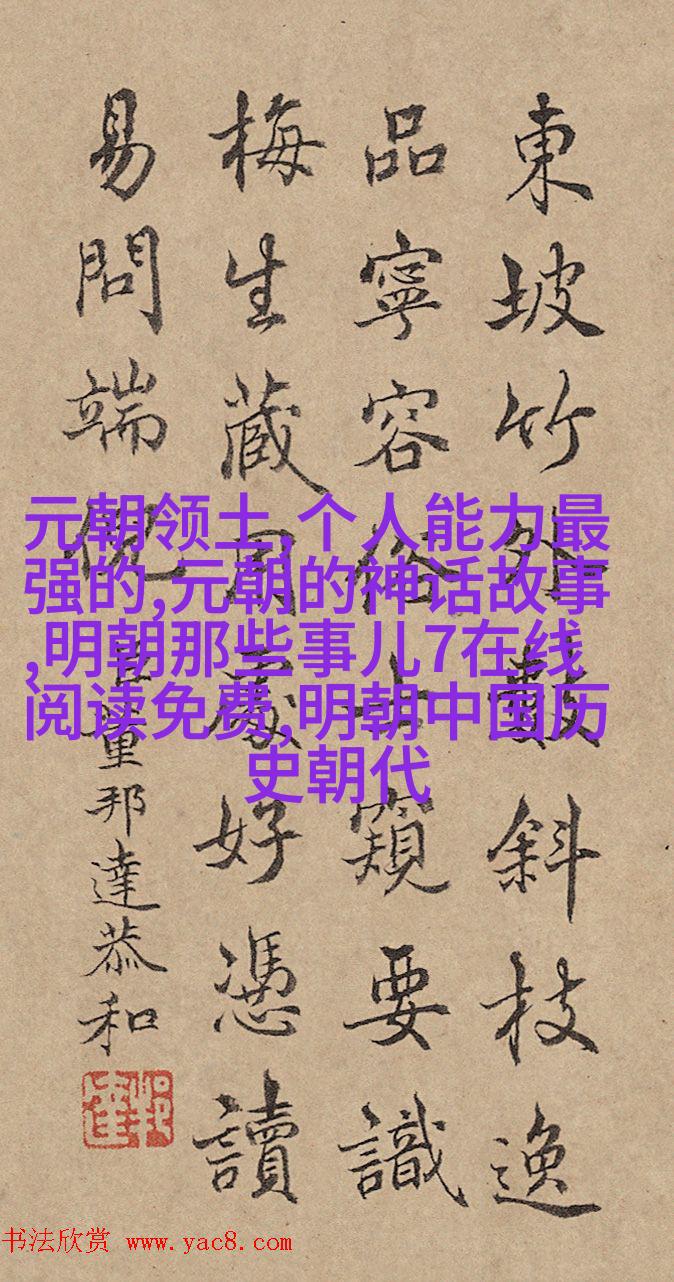 東坡竹外數斜枝逸
品寧容俗士窺要識
梅生藏用處好憑讀
易問端倪
臣董邦達恭和
元朝领土,个人能力最
强的,元朝的神话故事
,明朝那些事儿7在线
阅读免费,明朝中国历
史朝代
书法欣赏 www.yac8.com